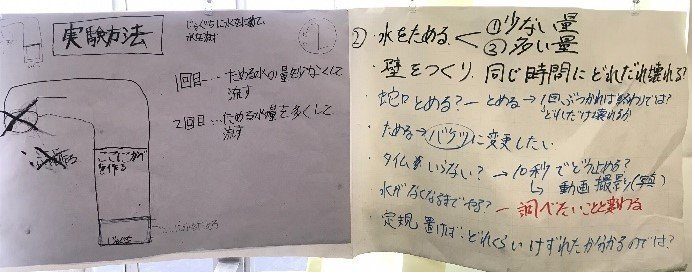 実験方法
じょうぐちに水をためて、
水を流す
①
1回目…ためる水の量を少なくして
流す
2回目…ためる水量を多くして
流す
② 水をためる < ①少ない量
②多い量
・壁をつくり 同じ時間に どれだけ壊れる?
・蛇口とめる?ーとめる→1回、ぶつかれば終わりでは?
どれだけ壊れるか
・ためる→バケツに変更したい
・タイムをいらない?→10秒でどう止める?
↳ 動画撮影(写真)
水がなくなるまでやる?ー調べたいことと変わる
・定規置けば、どれくらいけずれたか分かるのでは?